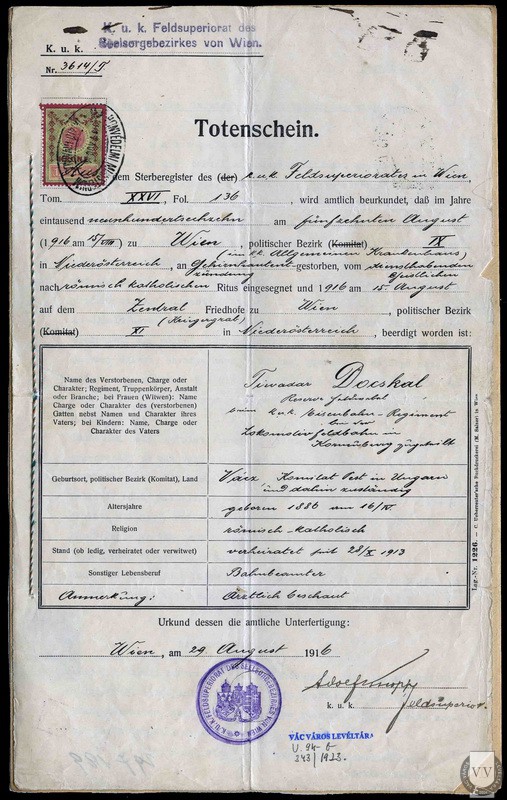 K. u. k. Feldsuperiorat des
Seelsorgebezirkes von Wien.
K. u. k.
Nr. 3614/J
Totenschein.
Aus dem Sterberegister des (der) k.u.k. Feldsuperiorates in Wien,
Tom. XXVI, Fol. 136, wird amtlich beurkundet, daß im Jahre
eintausend neunhundertsechzehn am fünfzehnten August
(1916 am 15/VIII) zu Wien, politischer Bezirk (Komitat) IX
(im k.k. Allgemeinen Krankenhaus)
in Niederösterreich, an Gehirnhautent- gestorben, vom diensthabenden
zündung Geistlichen
nach römisch katholischen Ritus eingesegnet und 1916 am 15. August
auf dem Zentral Friedhofe zu Wien, politischer Bezirk
(Kriegergrab)
(Komitat) XI in Niederösterreich, beerdigt worden ist:
Name des Verstorbenen, Charge oder
Charakter; Regiment, Truppenkörper, Anstalt
oder Branche; bei Frauen (Witwen): Name
Charge oder Charakter des (verstorbenen)
Gatten nebst Namen und Charakter ihres
Vaters; bei Kindern: Name, Charge oder
Charakter des Vaters
Tivadar Docskal
Reserve
beim k.u.k. Eisenbahn-Regiment
bei der
Lokomotivfeldbahn in
Korneuburg zugeteilt
Geburtsort, politischer Bezirk (Komitat), Land
Vácz, Komitat Pest in Ungarn
und dahin zuständig
Altersjahre
geboren 1886 am 16/IV
Religion
römisch-katholisch
Stand (ob ledig, verheiratet oder verwitwet)
verheiratet seit 28/X 1913
Sonstiger Lebensberuf
Bahnbeamter
Anmerkung:
Ärztlich beschaut
Urkund dessen die amtliche Unterfertigung:
Wien, am 29. August 1916
k. u. k. Feldsuperior.
VÁC VÁROS LEVÉLTÁRA
343/1923.
Lag.-Nr. 1226.
VV